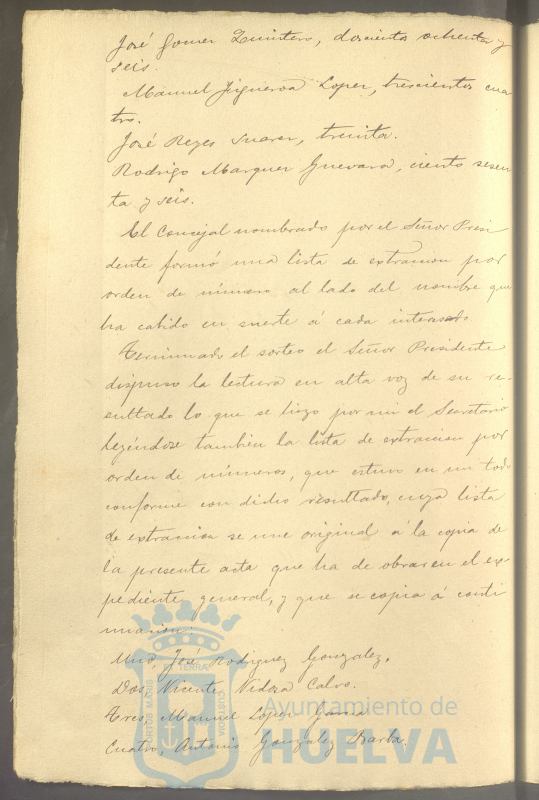 José Gomez Quintero, doscientos ochenta y
seis.
Manuel Figueroa Lopez, trescientos cua
tro.
José Reyes Suarez, treinta.
Rodrigo Marquez Guevara, ciento sesen
ta y seis.
El Concejal nombrado por el Señor Presi
dente formó una lista de extraccion por
orden de número al lado del nombre que
ha cabido en suerte á cada interesado
Terminado el sorteo el Señor Presidente
dispuso la lectura en alta voz de su re-
sultado lo que se hizo por mi el Secretario
leyéndose tambien la lista de extraccion por
orden de números, que estuvo en un todo
conforme con dicho resultado, cuya lista
de extraccion se une original á la copia de
la presente acta que ha de obrar en el ex-
pediente general, y que se copia á conti
nuacion:
Uno, José Rodriguez Gonzalez.
Dos, Vicente Calvo.
Tres, Manuel Lopez Garcia
Cuatro, Antonio Gonzalez Barba.
PORTUS MARIS
ET TERRAE
CUSTODIA
Ayuntamiento de
HUELVA